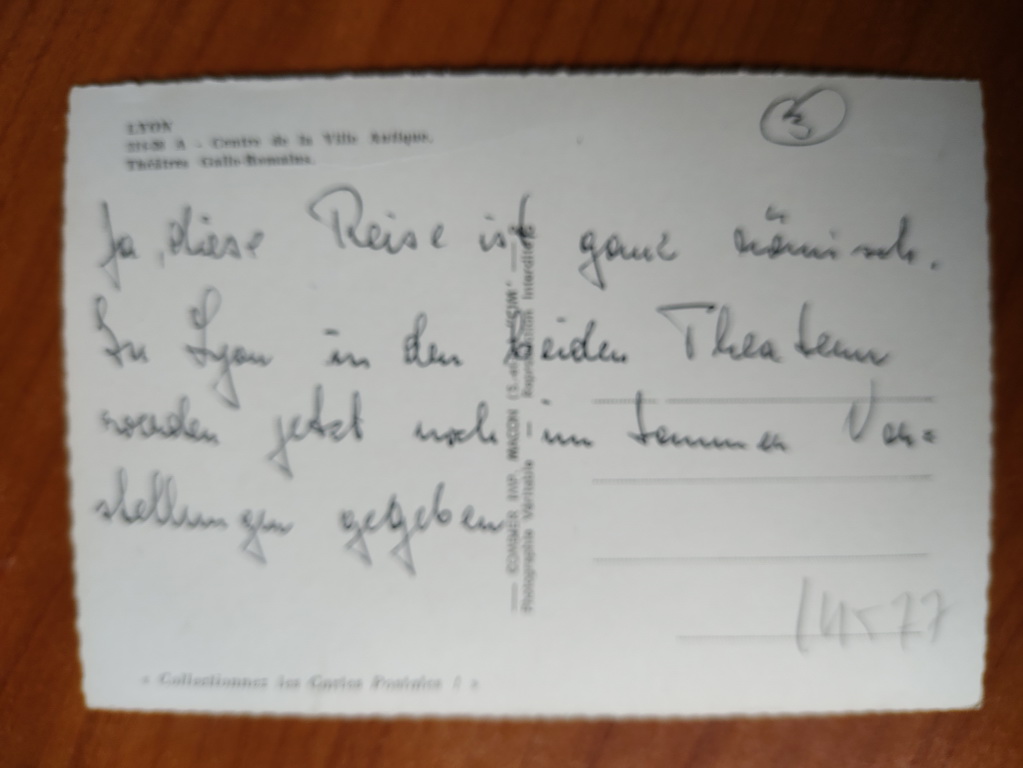 LYON
A - Centre de la Ville Antique.
Théâtres Gallo-Romains.
3
Ja, diese Reise ist ganz römisch.
In Lyon in den beiden Theatern
werden jetzt noch im Sommer Vor=
stellungen gegeben
COMBIER IMP. MACON
Photographie Véritable - Reproduction Interdite
« Collectionnez les Cartes Postales ! »